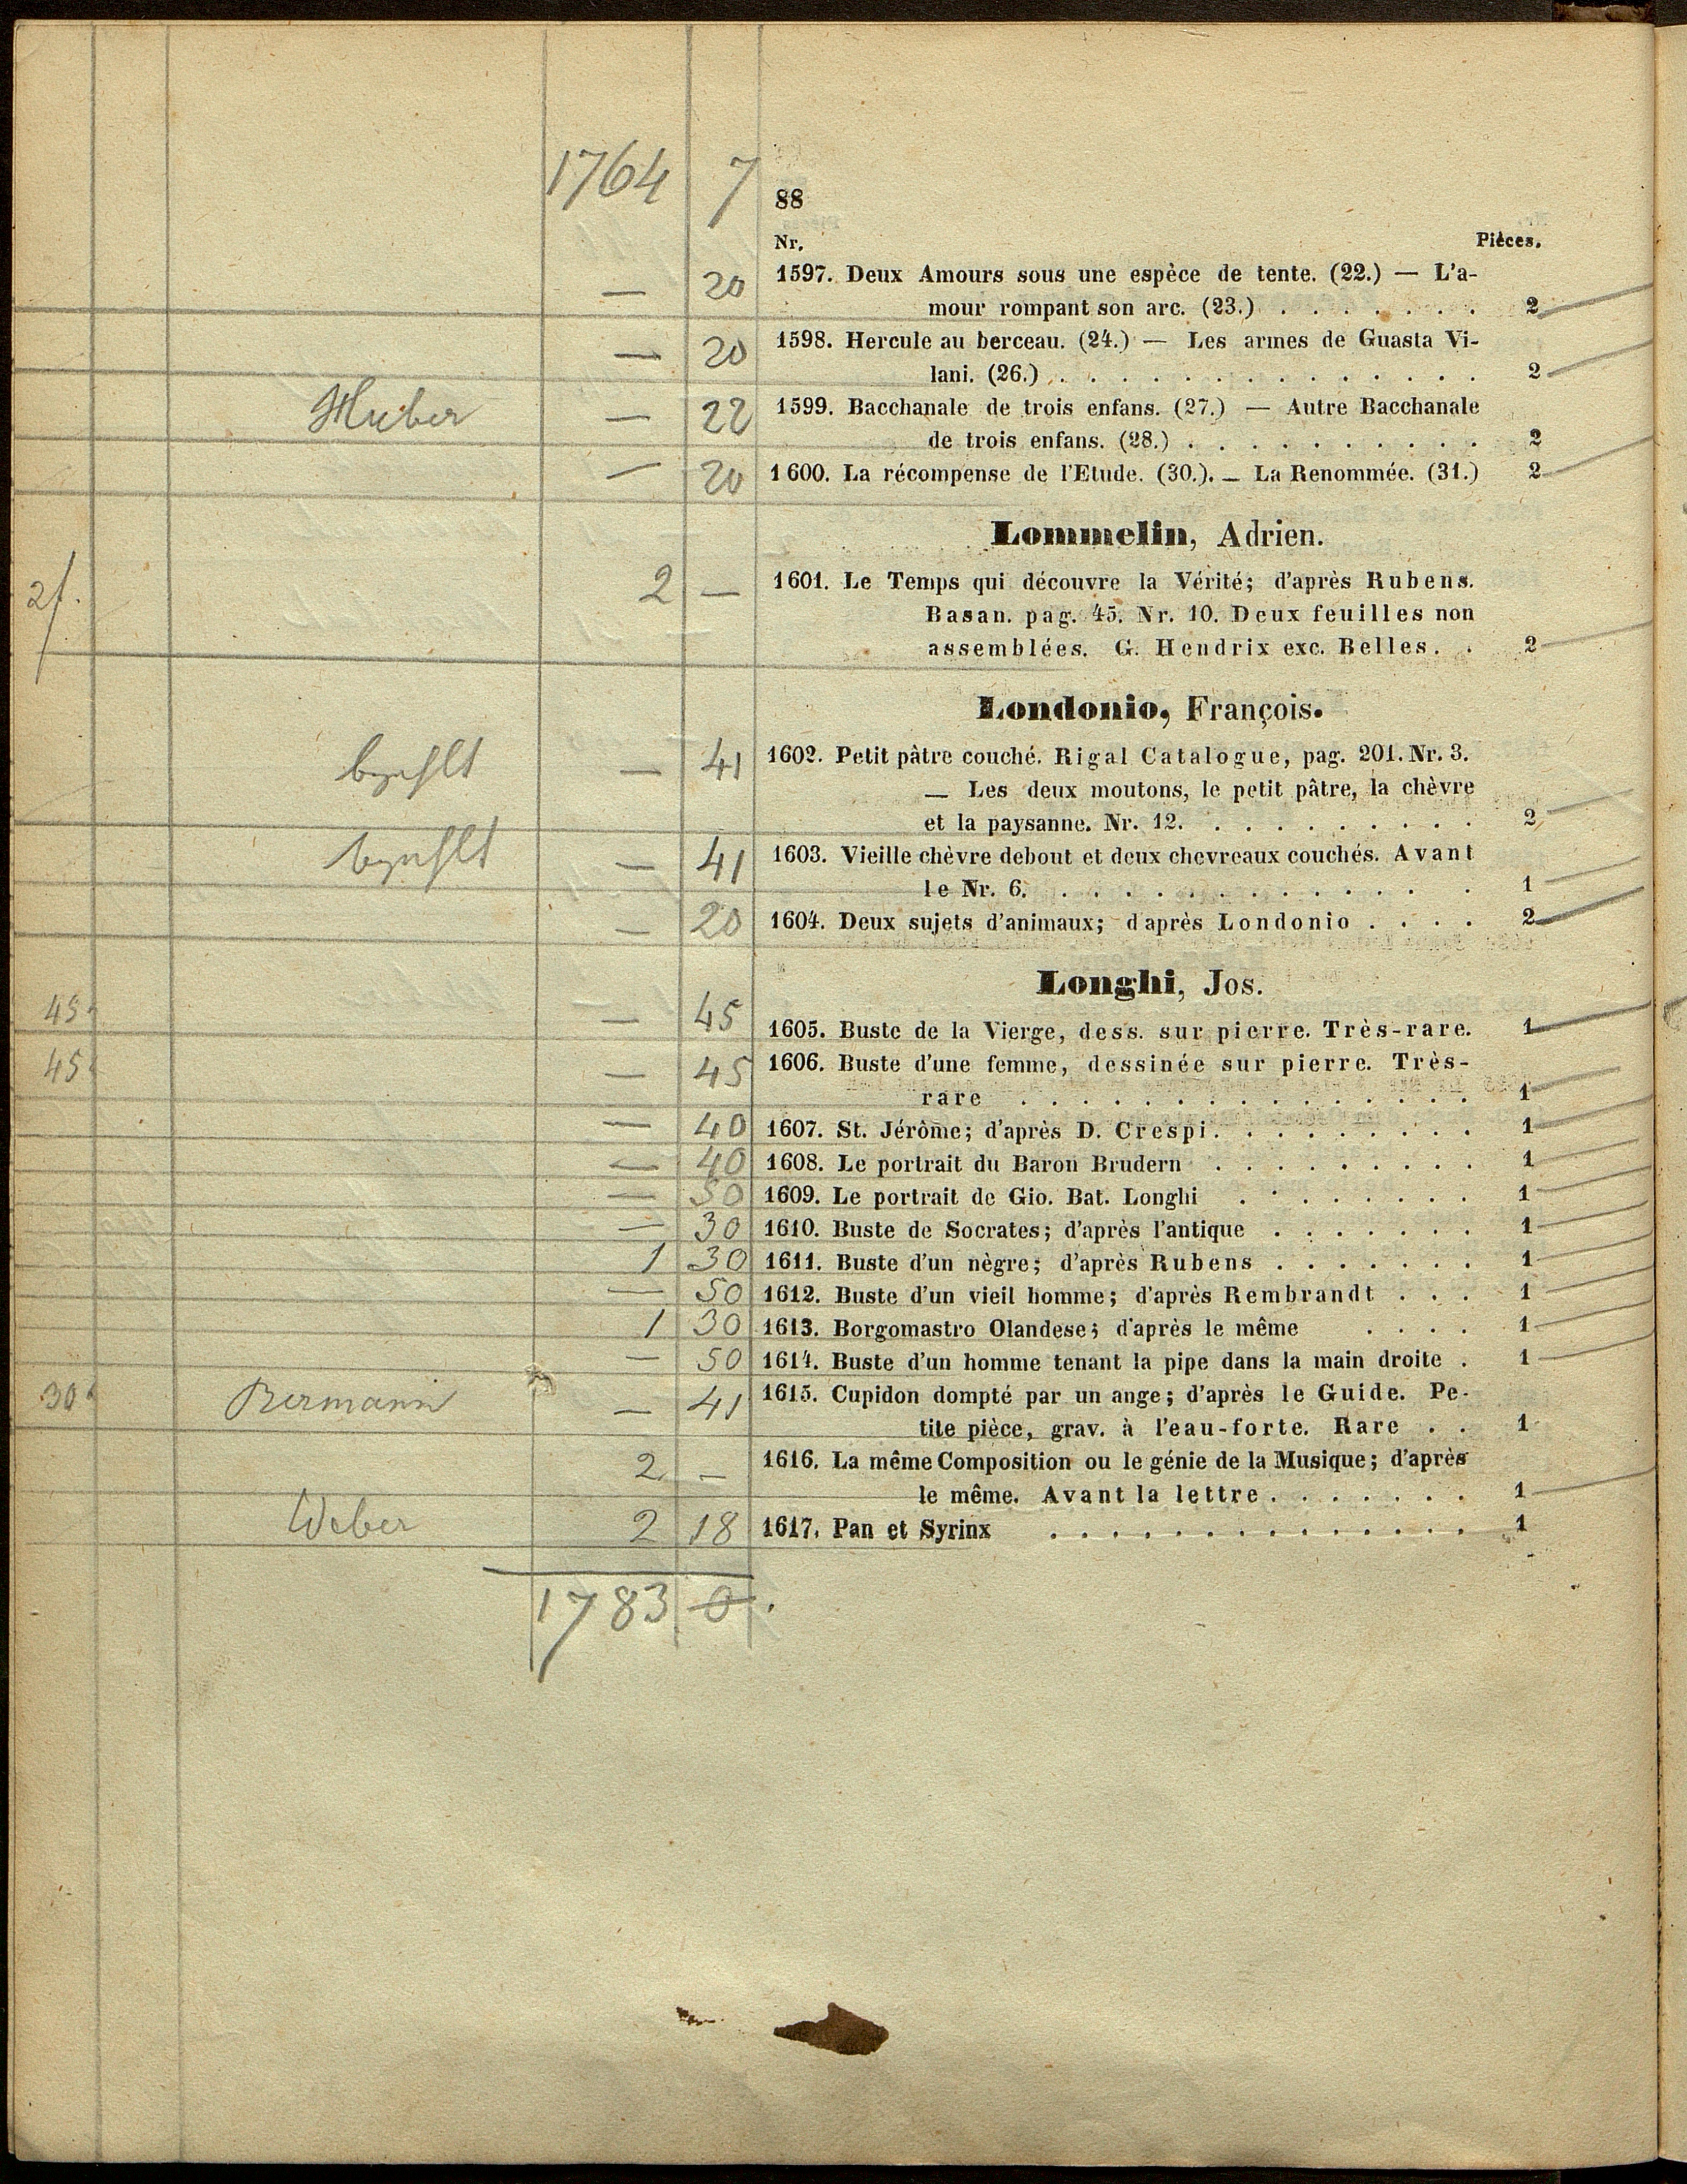 1764 7
88
Nr. Pièces.
— 20 1597. Deux Amours sous une espèce de tente. (22.) — L'a-
mour rompant son arc. (23.) . . . . . . . 2
— 20 1598. Hercule au berceau. (24.) — Les armes de Guasta Vi-
lani. (26.) . . . . . . . . . . . . . . 2
Huber — 22 1599. Bacchanale de trois enfans. (27.) — Autre Bacchanale
de trois enfans. (28.) . . . . . . . . . . 2
— 20 1600. La récompense de l'Etude. (30.). — La Renommée. (31.) 2
Lommelin, Adrien.
2f. 2 — 1601. Le Temps qui découvre la Vérité; d'après Rubens.
Basan. pag. 45. Nr. 10. Deux feuilles non
assemblées. G. Hendrix exc. Belles. . 2
Londonio, François.
bezahlt — 41 1602. Petit pâtre couché. Rigal Catalogue, pag. 201. Nr. 3.
— Les deux moutons, le petit pâtre, la chèvre
et la paysanne. Nr. 12. . . . . . . . . . 2
bezahlt — 41 1603. Vieille chèvre debout et deux chevreaux couchés. Avant
le Nr. 6. . . . . . . . . . . . . . . 1
— 20 1604. Deux sujets d'animaux; d'après Londonio . . . . 2
Longhi, Jos.
45. — 45 1605. Buste de la Vierge, dess. sur pierre. Très-rare. 1
45. — 45 1606. Buste d'une femme, dessinée sur pierre. Très-
rare . . . . . . . . . . . . . . . 1
— 40 1607. St. Jérôme; d'après D. Crespi. . . . . . . . . 1
— 40 1608. Le portrait du Baron Brudern . . . . . . . . . 1
— 50 1609. Le portrait de Gio. Bat. Longhi . . . . . . . . 1
— 30 1610. Buste de Socrates; d'après l'antique . . . . . . . 1
1 30 1611. Buste d'un nègre; d'après Rubens . . . . . . . 1
— 50 1612. Buste d'un vieil homme; d'après Rembrandt . . . 1
1 30 1613. Borgomastro Olandese; d'après le même . . . . 1
— 50 1614. Buste d'un homme tenant la pipe dans la main droite . 1
30. Bermann — 41 1615. Cupidon dompté par un ange; d'après le Guide. Pe-
tite pièce, grav. à l'eau-forte. Rare . . 1
2 — 1616. La même Composition ou le génie de la Musique; d'après
le même. Avant la lettre . . . . . . . 1
Weber 2 18 1617. Pan et Syrinx . . . . . . . . . . . . . . 1
1783 0.